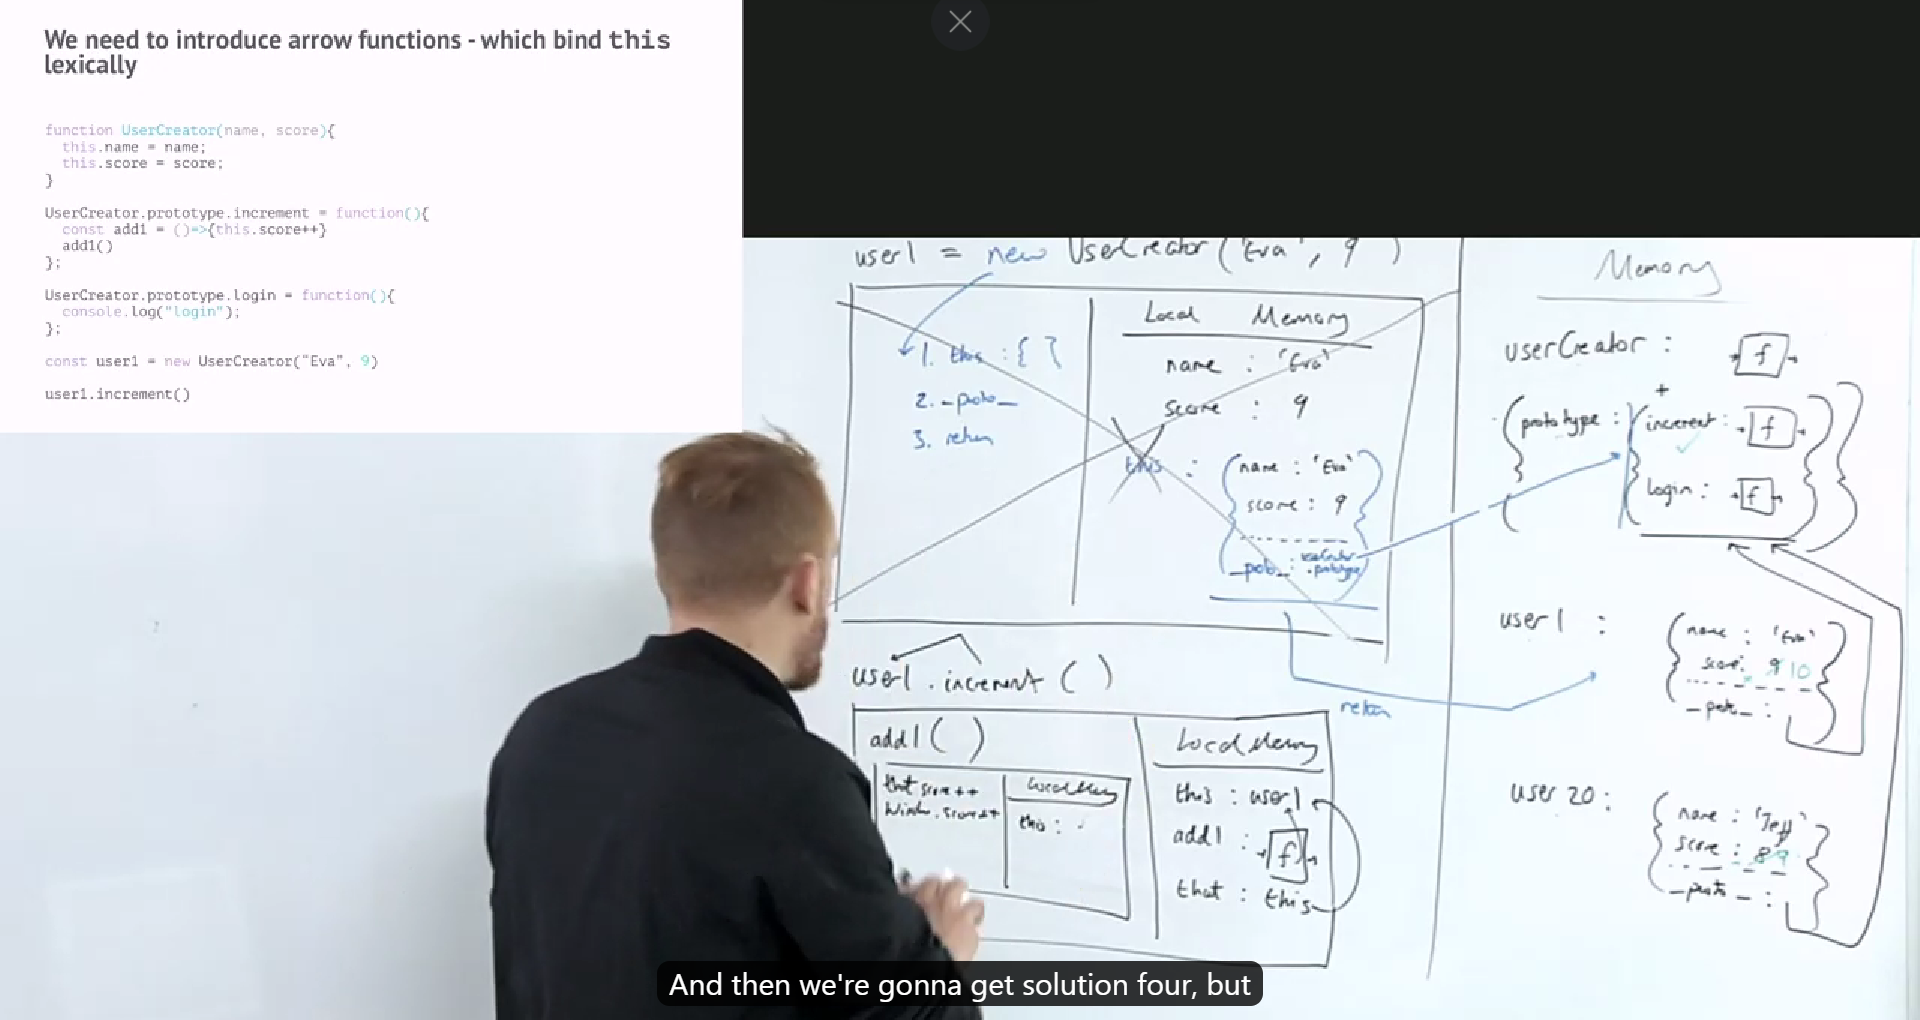 We need to introduce arrow functions - which bind this
lexically
function UserCreator(name, score){
this.name = name;
this.score = score;
}
UserCreator.prototype.increment = function(){
const add1 = ()=>{this.score++}
add1()
};
UserCreator.prototype.login = function(){
console.log("login");
};
const user1 = new UserCreator("Eva", 9)
user1.increment()
user1 = new UserCreator('Eva', 9)
Local Memory
1. this : { }
2. _proto_
3. return
name : 'Eva'
score : 9
this :
name : 'Eva'
score : 9
_proto_ : userCreator
.prototype
return
user1.increment()
add1()
that.score++
window.score++
Local Mem
this :
Local Memory
this : user1
add1 : f
that : this
Memory
userCreator : f
+
prototype : increment : f
login : f
user1 :
name : 'Eva'
score : 9 10
_proto_ :
user 20 :
name : 'Jeff'
score : 8 9
_proto_ :
And then we're gonna get solution four, but